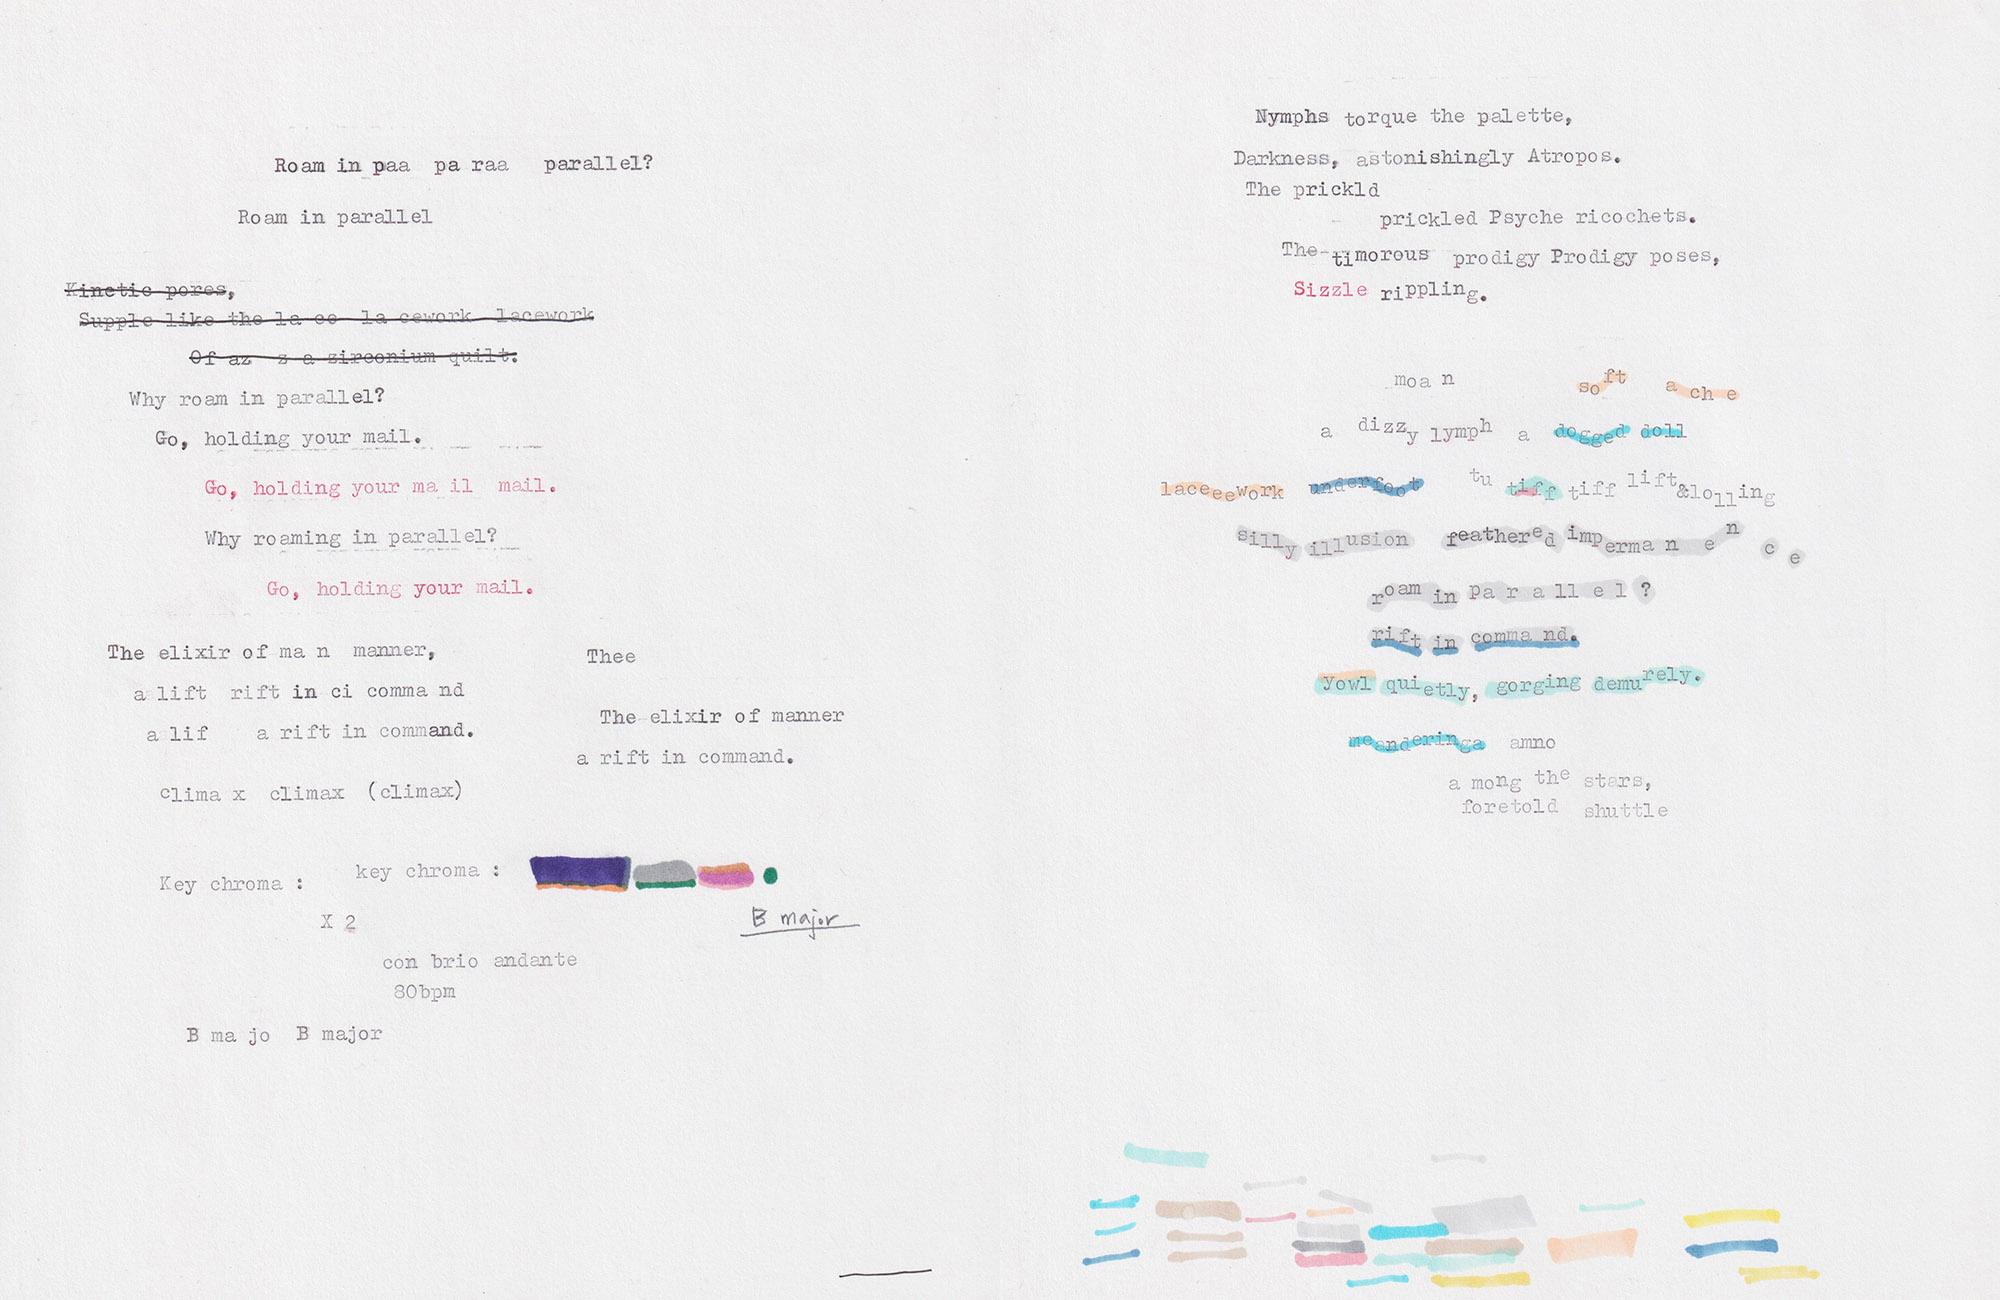 Roam in paa pa raa parallel?
Roam in parallel
Kinetic pores,
Supple like the la ce la cework lacework
Of az z a zirconium quilt.
Why roam in parallel?
Go, holding your mail.
Go, holding your ma il mail.
Why roaming in parallel?
Go, holding your mail.
The elixir of ma n manner,
a lift rift in ci comma nd
a lif a rift in command.
clima x climax (climax)
Thee
The elixir of manner
a rift in command.
Key chroma : key chroma :
X 2
B major
con brio andante
80bpm
B ma jo B major
Nymphs torque the palette,
Darkness, astonishingly Atropos.
The prickld
prickled Psyche ricochets.
The timorous prodigy Prodigy poses,
Sizzle rippling.
moa n soft a che
a dizzy lymph a dogged doll
laceeework underfoot tu tiff tiff lift&lolling
silly illusion feathered imperma n e n c e
roam in pa r a ll e l ?
rift in comma nd.
yowl quietly, gorging demurely.
meanderinga amno
a mong the stars,
foretold shuttle